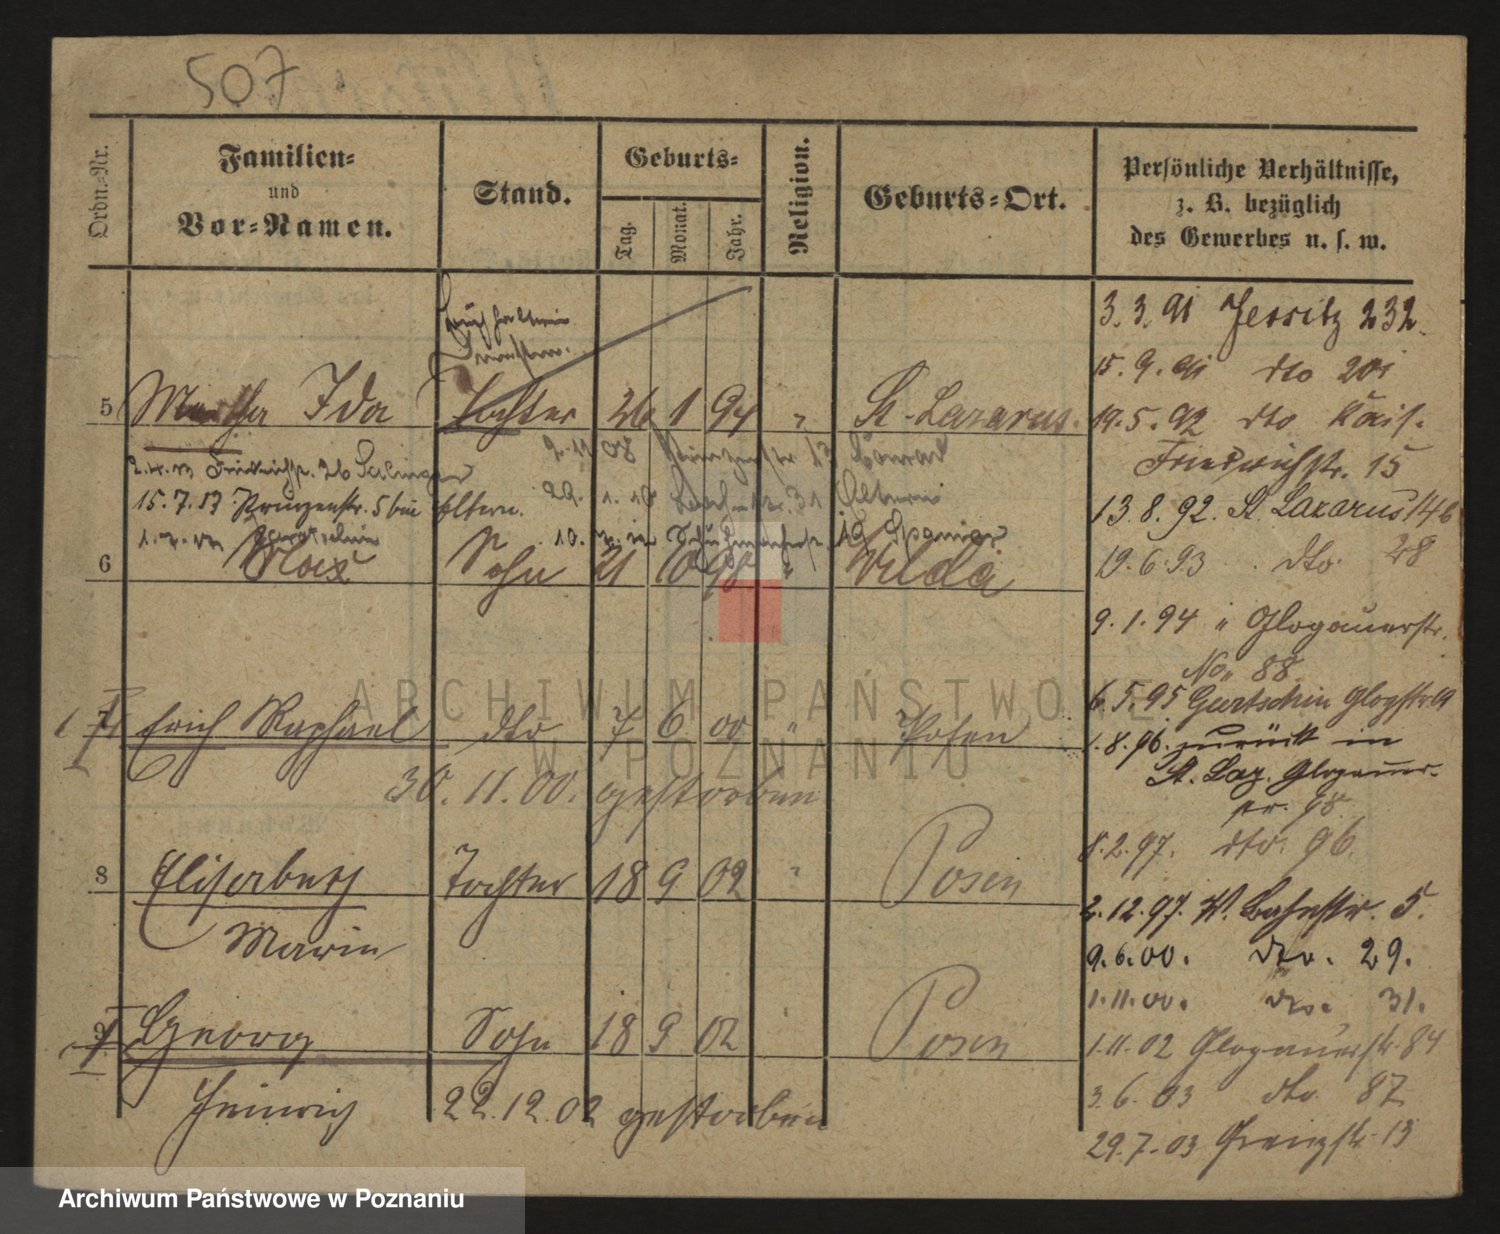 507
Ordn.-Nr.
Familien-
und
Vor-Namen.
Stand.
Geburts-
Tag.
Monat.
Jahr.
Religion.
Geburts-Ort.
Persönliche Verhältnisse,
z. B. bezüglich
des Gewerbes u. s. w.
3. 3. 91 Jersitz 232.
15. 9. 91 dto 201
5 Martha Ida Tochter 26 1 94 " St. Lazarus.
19. 5. 92 dto Kais.
Friedrichstr. 15
15. 7. 13 Prinzenstr. 5 bei Eltern.
13. 8. 92. St. Lazarus 146
6 Max Sohn 21 10 98 " Wilda
19. 6. 93 dto. 28
9. 1. 94 " Glogauerstr.
No 88.
6. 5. 95 Gurtschin
7 Erich Raphael dto 7 6 00 " Posen
30. 11. 00. gestorben
1. 8. 96. zurück in
St. Laz. Glogauer-
str. 98
8. 2. 97. dto. 96.
8 Elisabeth Tochter 18 9 02 " Posen
Marie
2. 12. 97. W. Bahnstr. 5.
9. 6. 00. dto. 29.
1. 11. 00. dto. 31.
9 Georg Sohn 18 9 02 " Posen
Heinrich
22. 12. 02 gestorben
1. 11. 02 Glogauerstr. 84
3. 6. 03 dto 87
29. 7. 03 Prinzstr. 13
ARCHIWUM PAŃSTWOWE
W POZNANIU
Archiwum Państwowe w Poznaniu